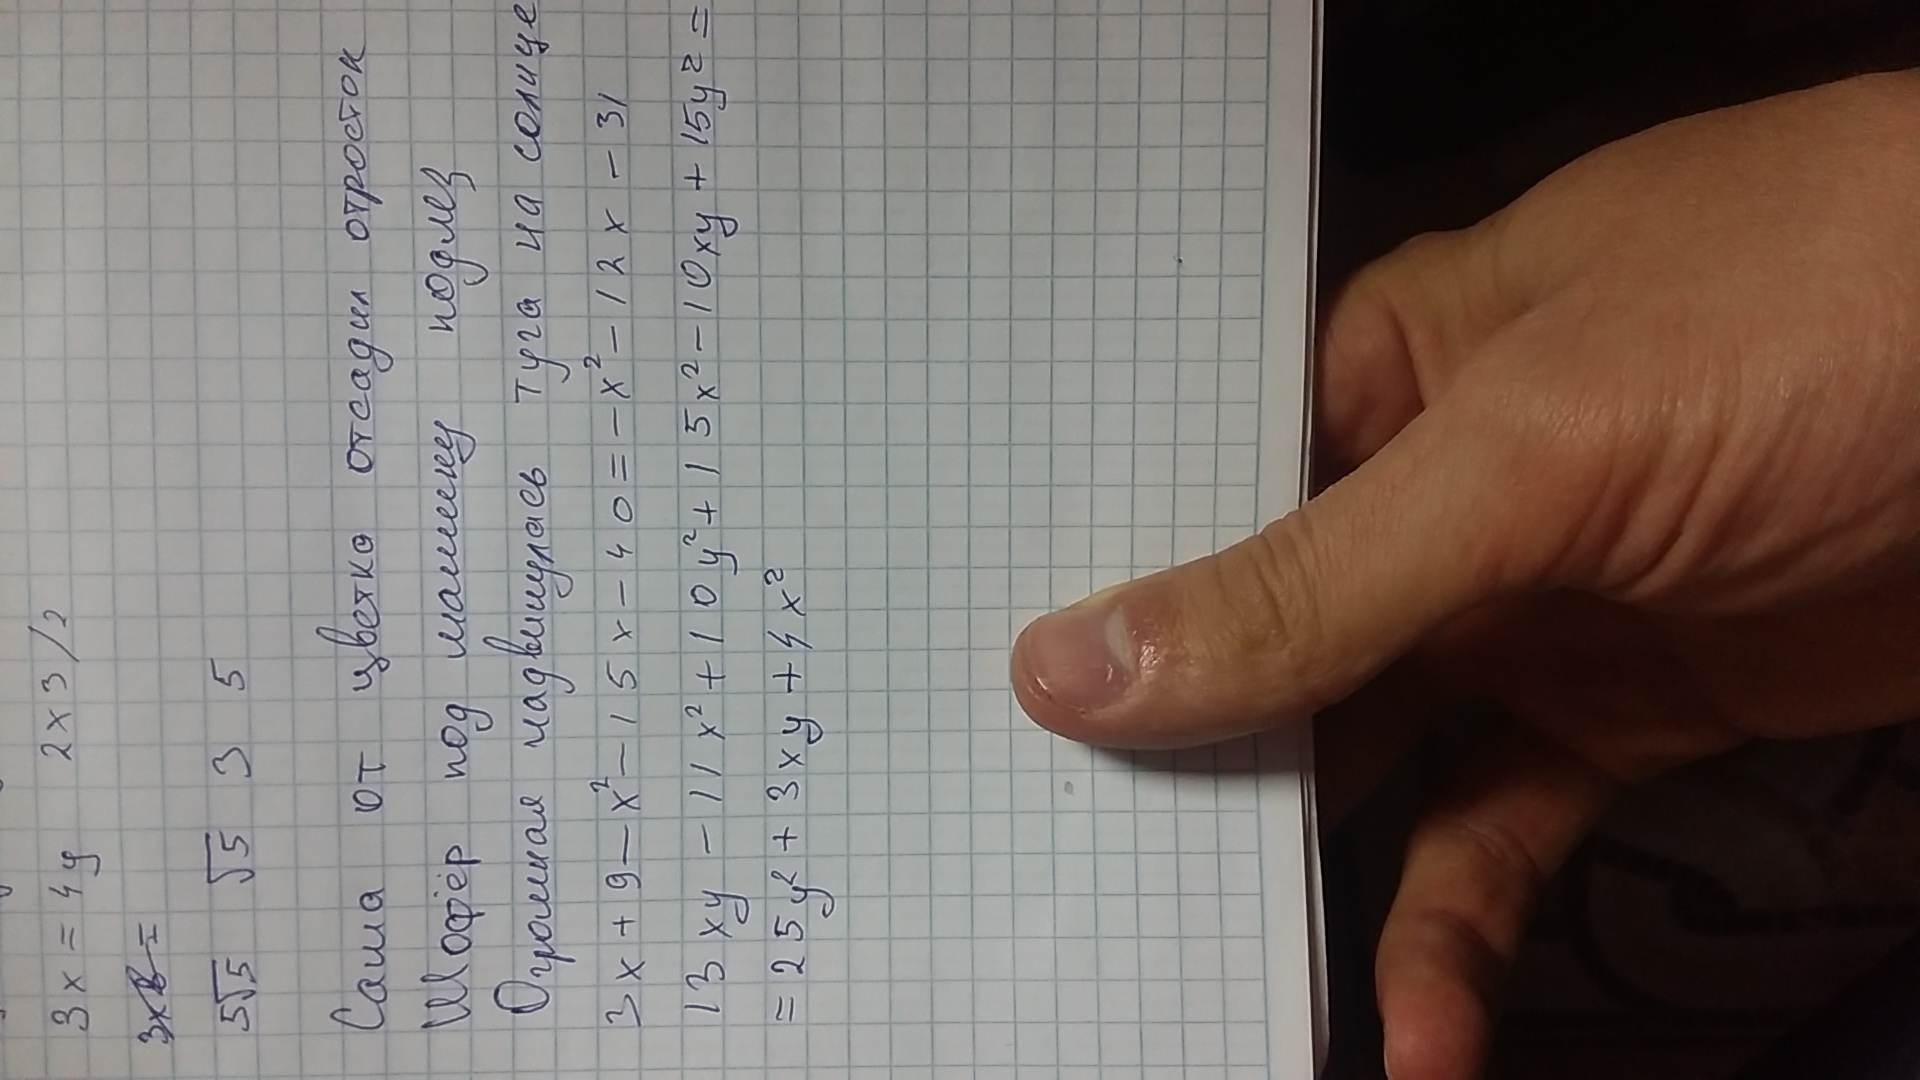 3x = 4y 2x3/2
5√5 √5 3 5
Саша от цветка отсадил отросток
Шофёр под машину подлез
Огромная надвинулась туга на солнце
3x + 9 - x² - 15x - 40 = - x² - 12x - 31
13xy - 11x² + 10y² + 15x² - 10xy + 15y² =
= 25y² + 3xy + 4x²